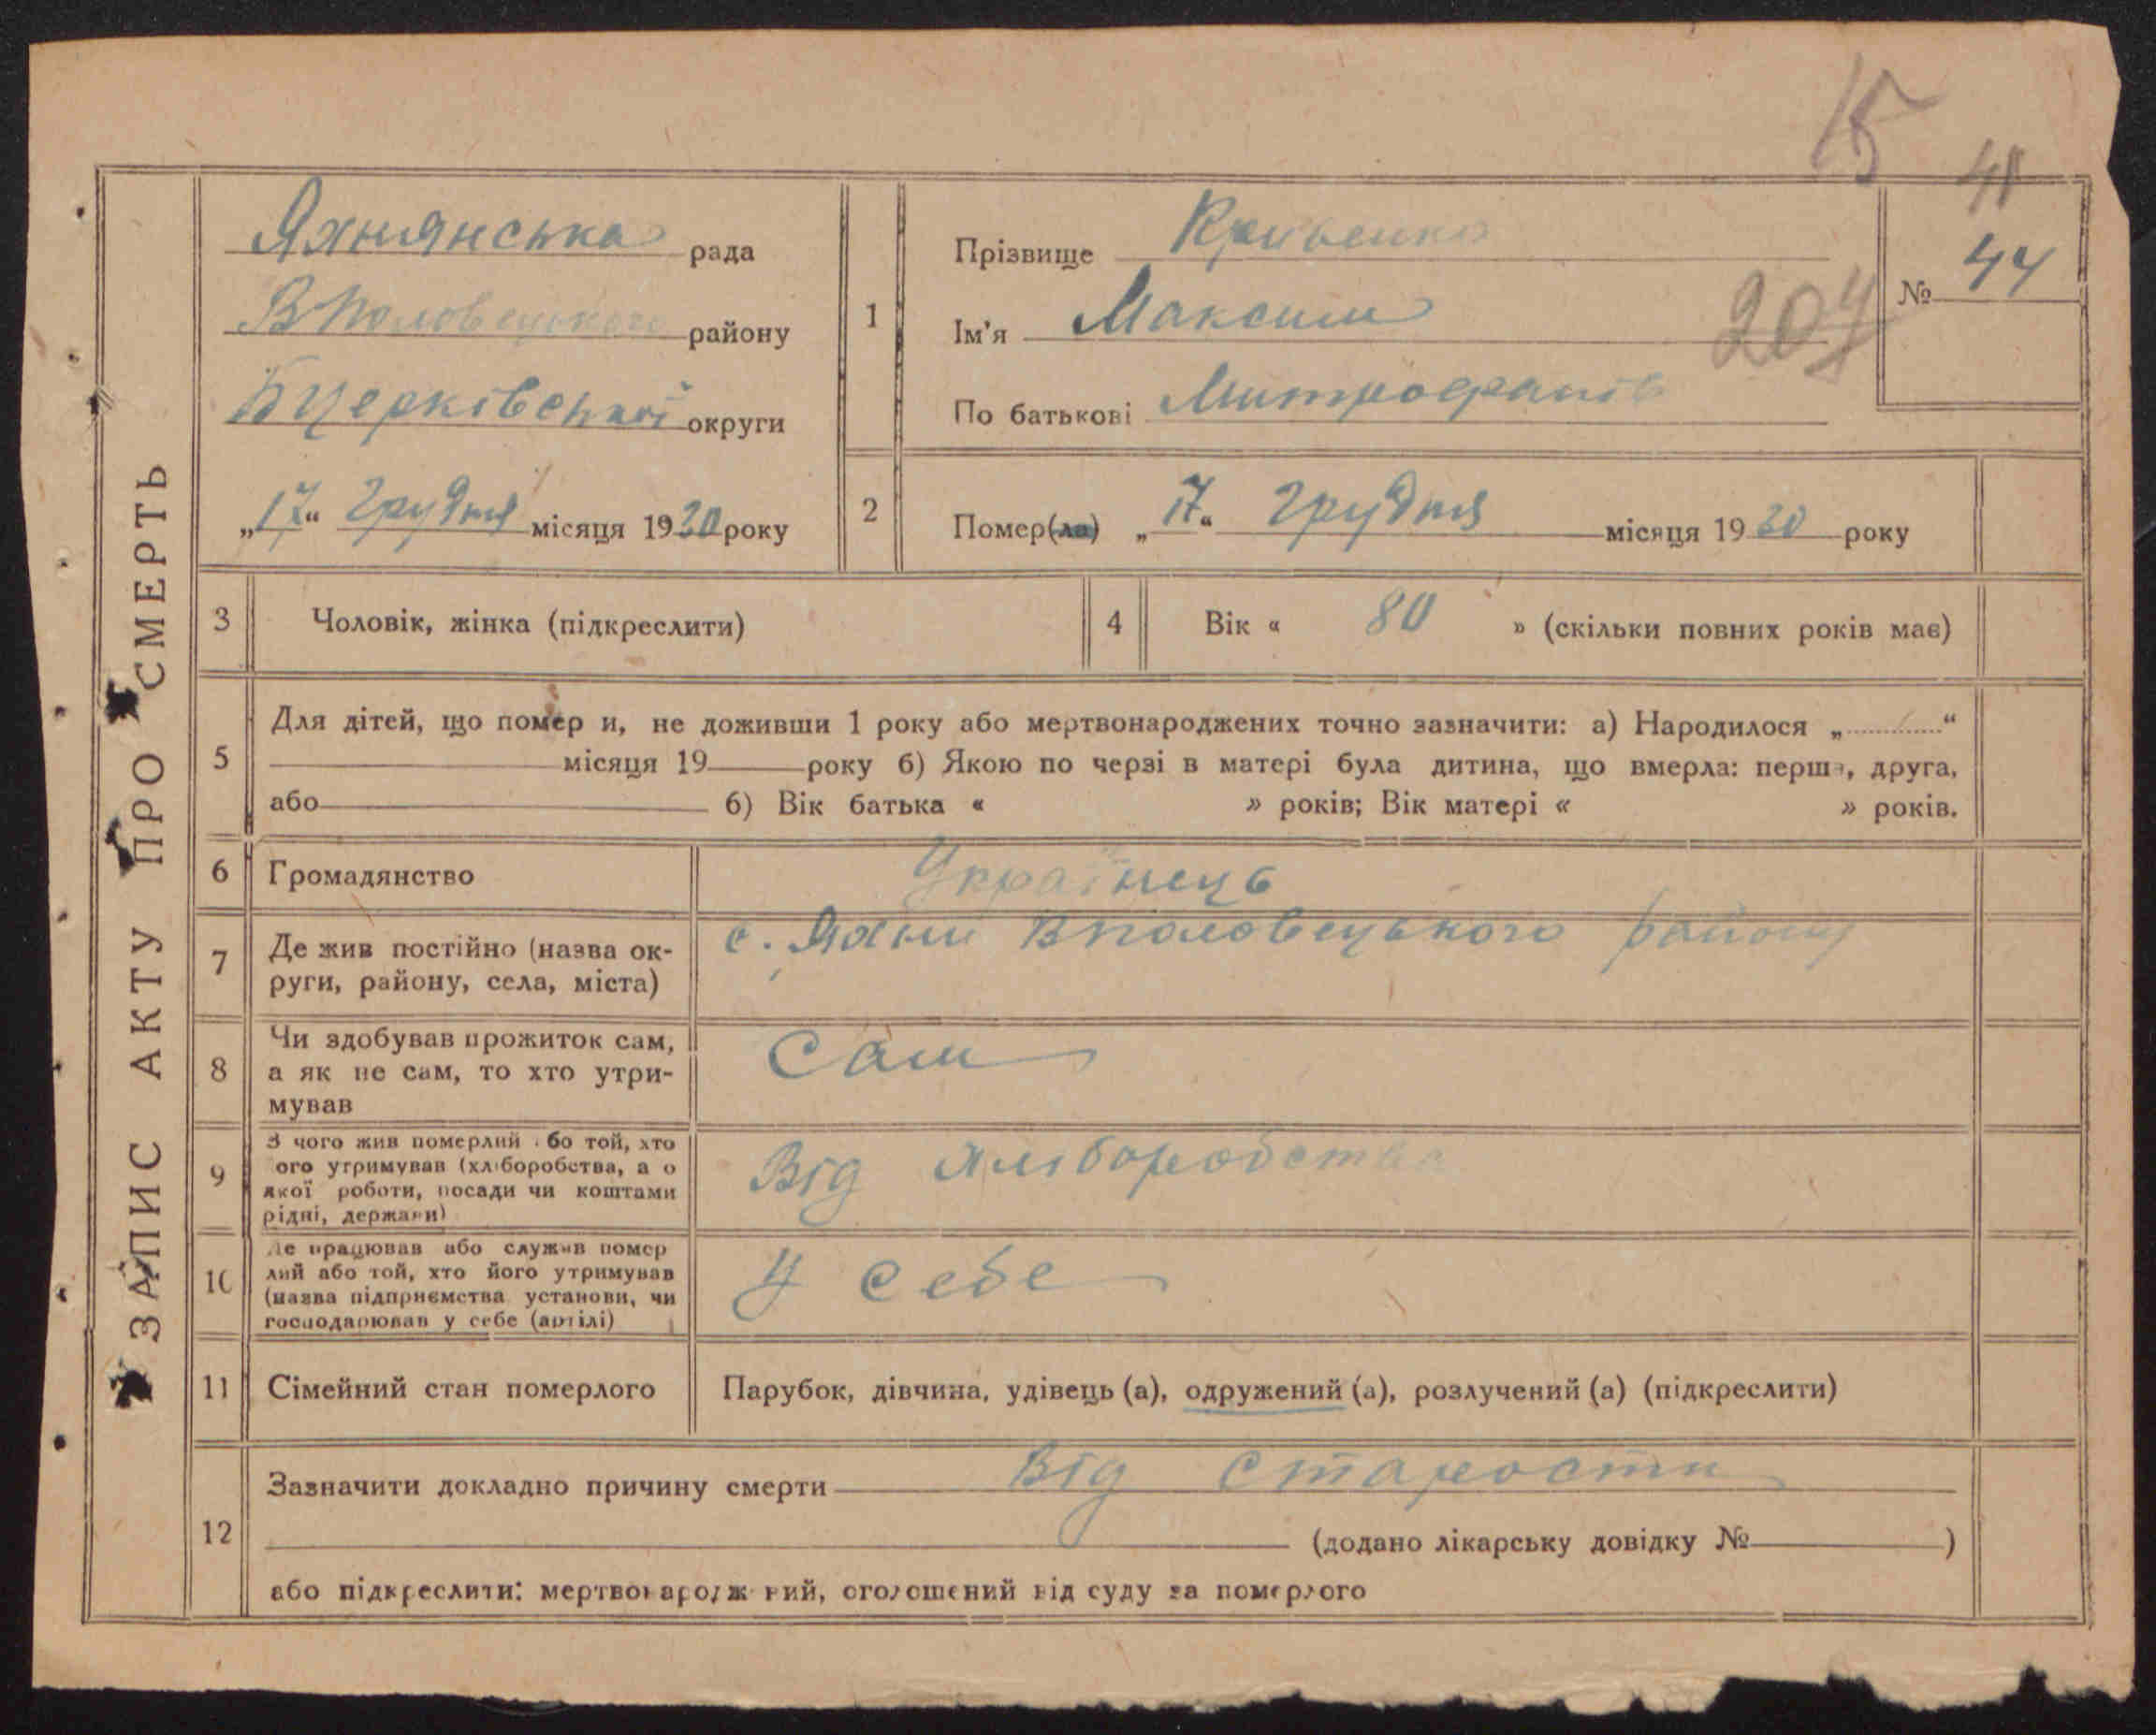 15
41
ЗАПИС АКТУ ПРО СМЕРТЬ
Яхнянська рада
ВПоловецького району
БЦерківської округи
„17“ грудня місяця 1930 року
1
Прізвище Кривенко
Ім'я Максим
По батькові Митрофанів
204
№ 44
2
Помер(ла) „17“ грудня місяця 1930 року
3
Чоловік, жінка (підкреслити)
4
Вік « 80 » (скільки повних років має)
5
Для дітей, що помер и, не доживши 1 року або мертвонароджених точно зазначити: а) Народилося „ “
місяця 19 року б) Якою по черзі в матері була дитина, що вмерла: перша, друга,
або б) Вік батька « » років; Вік матері « » років.
6
Громадянство
Українець
7
Де жив постійно (назва ок-
руги, району, села, міста)
с. Яхни ВПоловецького району
8
Чи здобував прожиток сам,
а як не сам, то хто утри-
мував
Сам
9
З чого жив померлий або той, хто
ого утримував (хліборобства, а о
якої роботи, посади чи коштами
рідні, держави)
Від хліборобства
10
Де працював або служив помер
лий або той, хто його утримував
(назва підприємства установи, чи
господарював у себе (артілі)
У себе
11
Сімейний стан померлого
Парубок, дівчина, удівець (а), одружений (а), розлучений (а) (підкреслити)
12
Зазначити докладно причину смерти Від старости
(додано лікарську довідку № )
або підкреслити: мертвонароджений, оголошений від суду за померлого